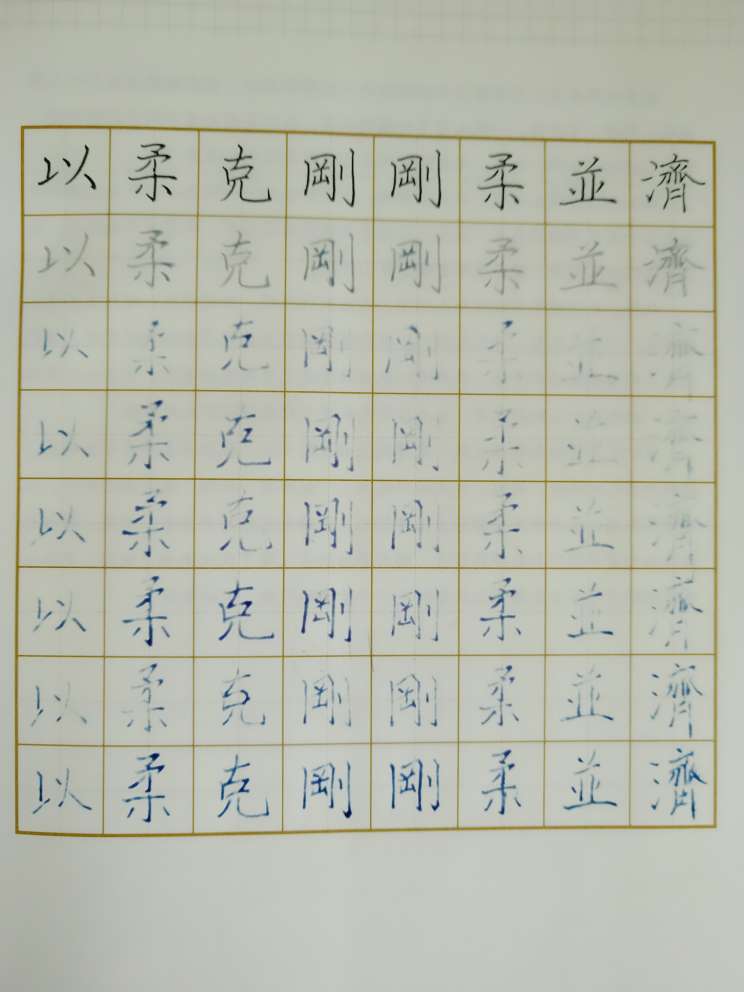 以柔克剛剛柔並濟
以柔克剛剛柔並濟
以柔克剛剛柔並濟
以柔克剛剛柔並濟
以柔克剛剛柔並濟
以柔克剛剛柔並濟
以柔克剛剛柔並濟
以柔克剛剛柔並濟